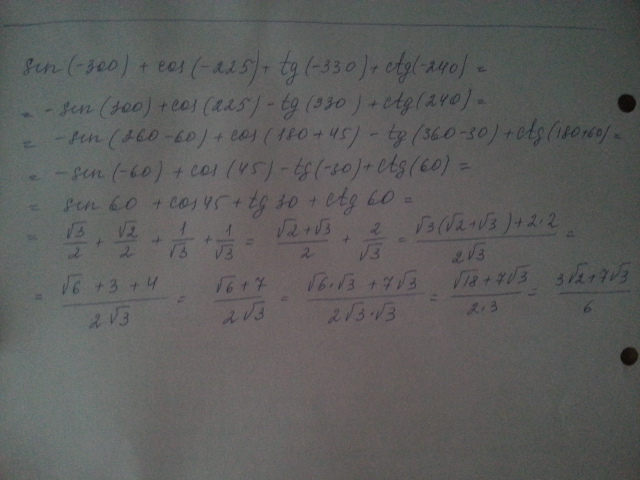 sin(-300) + cos(-225) + tg(-330) + ctg(-240) =
= -sin(300) + cos(225) - tg(330) + ctg(240) =
= -sin(360-60) + cos(180+45) - tg(360-30) + ctg(180+60) =
= -sin(-60) + cos(45) - tg(-30) + ctg(60) =
= sin 60 + cos 45 + tg 30 + ctg 60 =
= √3/2 + √2/2 + 1/√3 + 1/√3 = (√2+√3)/2 + 2/√3 = (√3(√2+√3)+2·2)/(2√3) =
= (√6+3+4)/(2√3) = (√6+7)/(2√3) = (√6·√3+7√3)/(2√3·√3) = (√18+7√3)/(2·3) = (3√2+7√3)/6